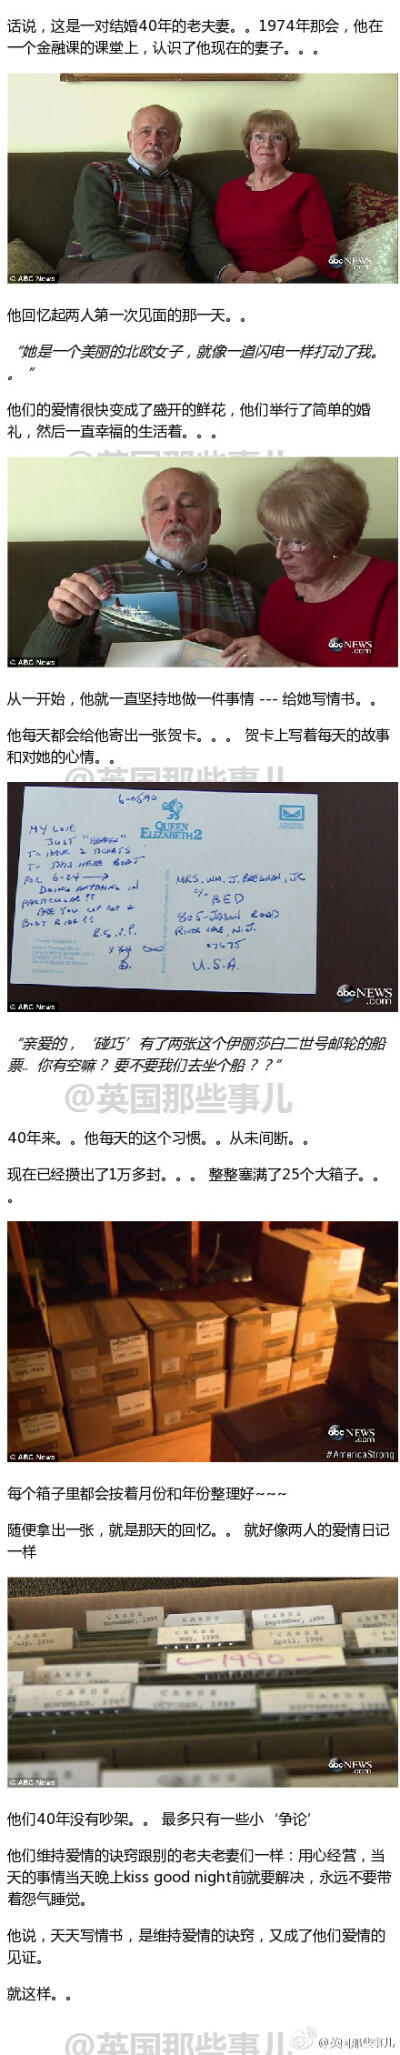 话说，这是一对结婚40年的老夫妻。。1974年那会，他在
一个金融课的课堂上，认识了他现在的妻子。。。
abc NEWS
.com
© ABC News
他回忆起两人第一次见面的那一天。。
“她是一个美丽的北欧女子，就像一道闪电一样打动了我。
。”
他们的爱情很快变成了盛开的鲜花，他们举行了简单的婚
礼，然后一直幸福的生活着。。。
@英国那些事儿
abc NEWS
.com
© ABC News
从一开始，他就一直坚持地做一件事情 --- 给她写情书。。
他每天都会给他寄出一张贺卡。。。 贺卡上写着每天的故事
和对她的心情。。
@英国那些事儿
MY LOVE
JUST "HAPPENS"
TO HAVE 2 TICKETS
TO THIS HERE BOAT
FOR 6-24
DOING ANYTHING IN
PARTICULAR??
ARE YOU UP FOR A
BOAT RIDE??
R.S.V.P.
QUEEN
ELIZABETH 2
MRS. WM. J. BRESNAN, JR
% BED
805-JASON ROAD
RIVER VALE, N.J.
07675
U.S.A.
abc NEWS
.com
© ABC News
“亲爱的，‘碰巧’有了两张这个伊丽莎白二世号邮轮的船
票.. 你有空嘛？ 要不要我们去坐个船？？”
@英国那些事儿
40年来。。他每天的这个习惯。。从未间断。。
现在已经攒出了1万多封。。。 整整塞满了25个大箱子。。
。
abc NEWS
.com
© ABC News
#AmericaStrong
每个箱子里都会按着月份和年份整理好~~~
随便拿出一张，就是那天的回忆。。 就好像两人的爱情日记
一样
CARDS
November, 1990
CARDS
September, 1990
CARDS
May, 1990
CARDS
April, 1990
1990
CARDS
NOVEMBER, 1989
CARDS
OCTOBER, 1989
CARDS
abc NEWS
.com
© ABC News
他们40年没有吵架。。 最多只有一些小‘争论’
他们维持爱情的诀窍跟别的老夫老妻们一样：用心经营，当
天的事情当天晚上kiss good night前就要解决，永远不要带
着怨气睡觉。
他说，天天写情书，是维持爱情的诀窍，又成了他们爱情的
见证。
就这样。。
@英国那些事儿
@英国那些事儿